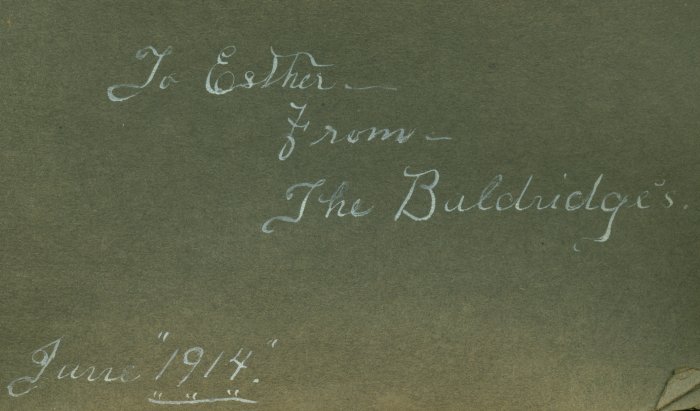 To Esther —
From —
The Baldridge's.
June "1914."